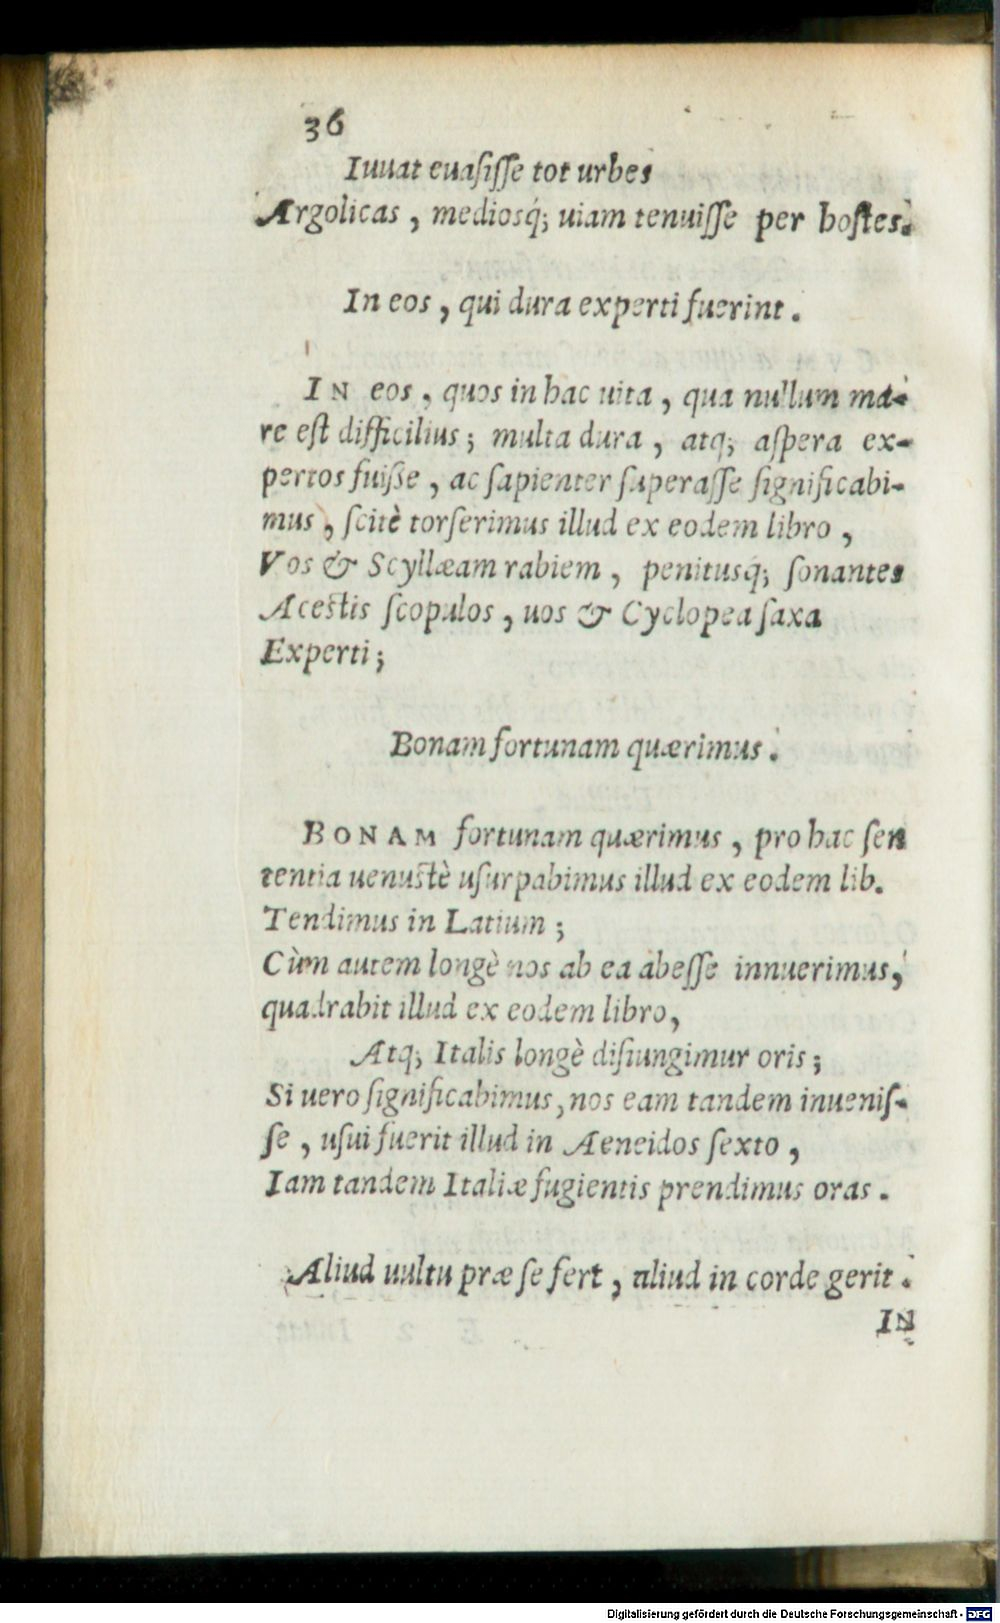 36
Iuuat euasiſſe tot urbes
Argolicas, mediosq́; uiam tenuiſſe per hoſtes.
In eos, qui dura experti fuerint.
IN eos, quos in hac uita, qua nullum ma-
re eſt difficilius; multa dura, atq; aſpera ex-
pertos fuiße, ac ſapienter ſuperaſſe ſignificabi-
mus, ſcitè torſerimus illud ex eodem libro,
Vos & Scyllæam rabiem, penitusq́; ſonantes
Aceſtis ſcopulos, uos & Cyclopea ſaxa
Experti;
Bonam fortunam quærimus.
BONAM fortunam quærimus, pro hac ſen
tentia uenuſtè uſurpabimus illud ex eodem lib.
Tendimus in Latium;
Cùm autem longè nos ab ea abeſſe innuerimus,
quadrabit illud ex eodem libro,
Atq; Italis longè diſiungimur oris;
Si uero ſignificabimus, nos eam tandem inueniſ-
ſe, uſui fuerit illud in Aeneidos ſexto,
Iam tandem Italiæ fugientis prendimus oras.
Aliud uultu præ ſe fert, aliud in corde gerit.
IN
Digitalisierung gefördert durch die Deutsche Forschungsgemeinschaft - DFG